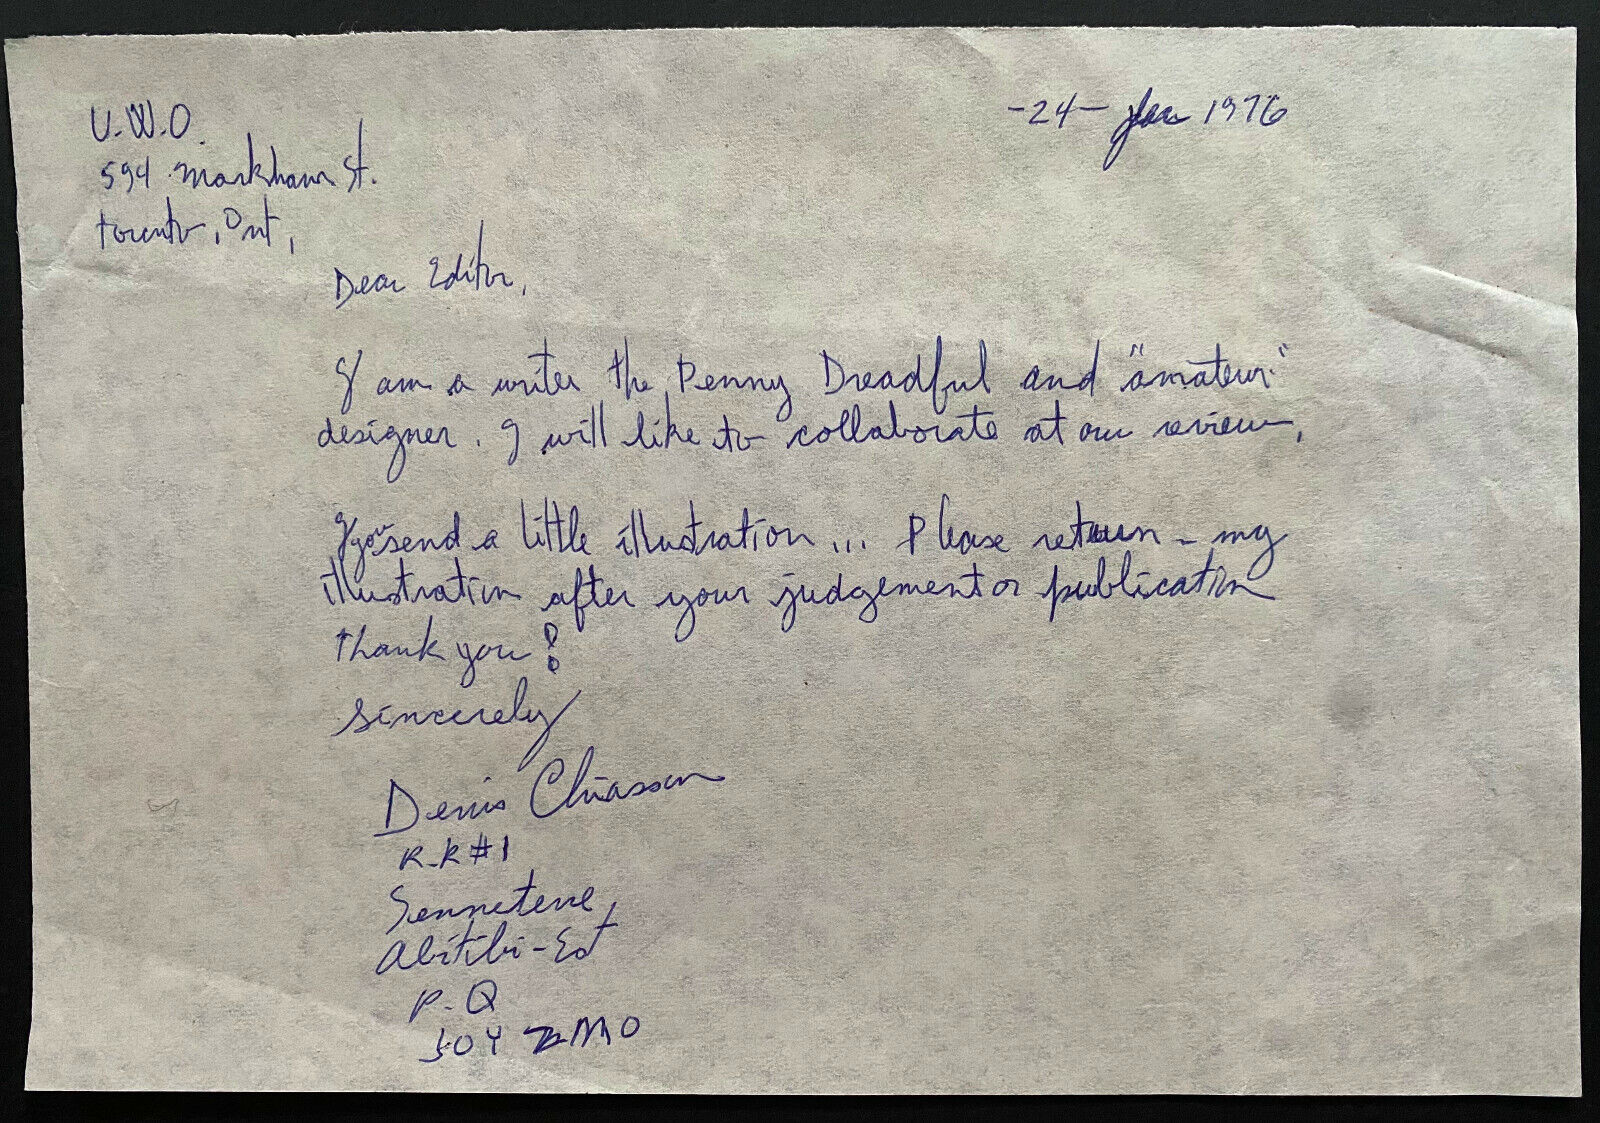 U.W.O.
-24- Jan 1976
594 Markham St.
Toronto, Ont,
Dear Editor,
I am a writer the Penny Dreadful and "amateur"
designer. I will like to collaborate at our review,
I send a little illustration... Please return - my
illustration after your judgement or publication
thank you!
sincerely
Denis Chiasson
R-R #1
Sennetene,
Abitibi-Est
P-Q
J0Y 2M0